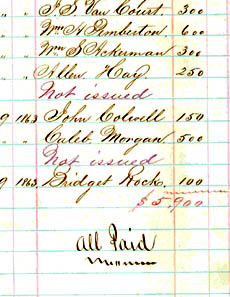 " " J S Van Court. 300
" " Wm H Pemberton. 600
" " Wm S Ackerman 300
" " Allen Hay. 250
Not issued
9 1863 John Colwell 150
" " Caleb Morgan. 500
Not issued
9 1863. Bridget Rock. 100
$5,900
All Paid